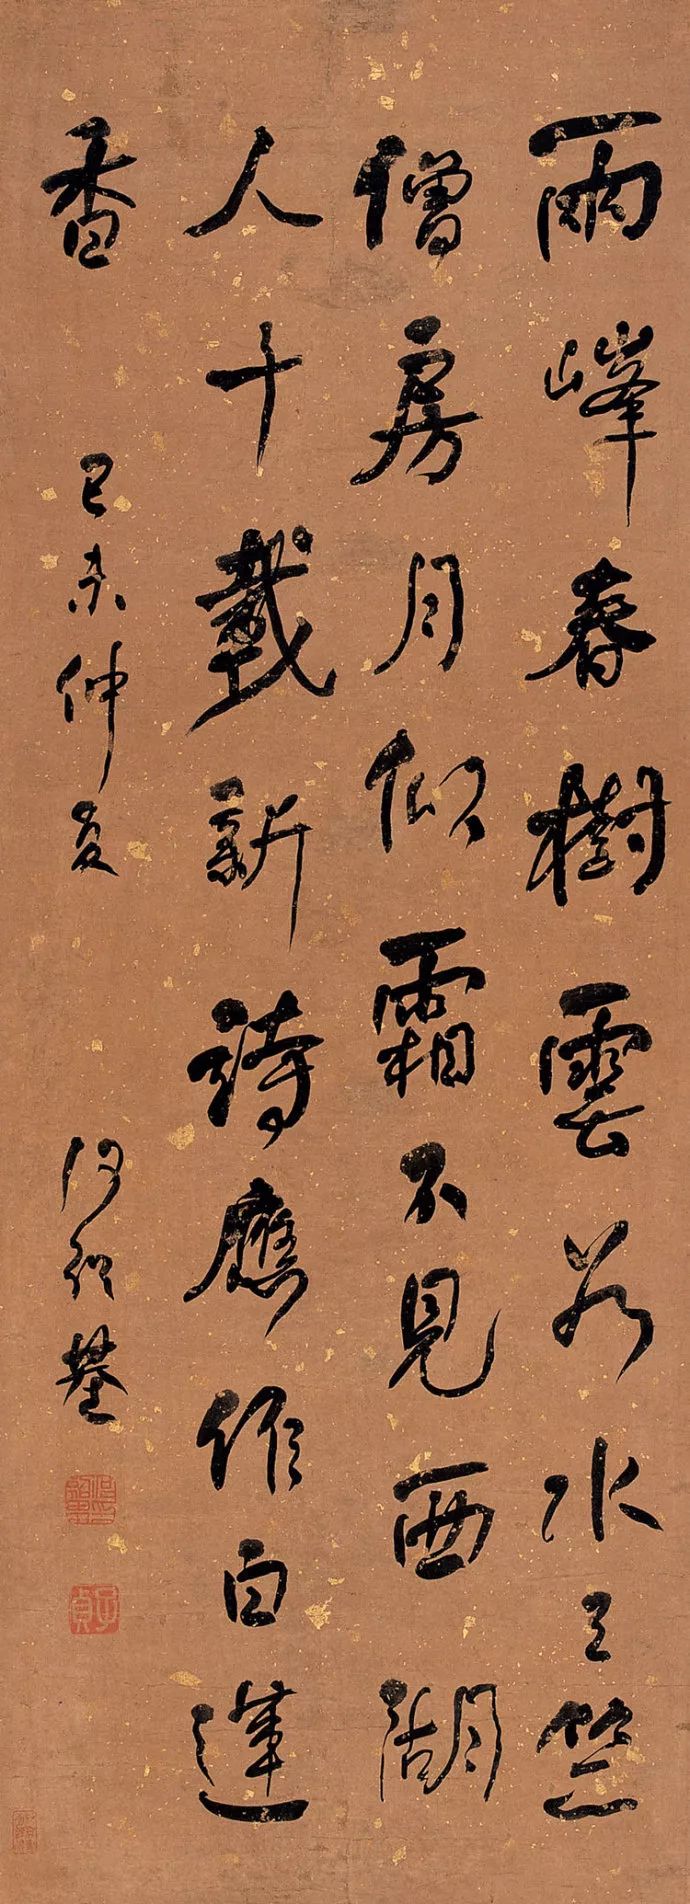 兩峰春樹雲如水三竺
僧房月似霜不見西湖
人十載新詩應作白蓮
香
己未仲夏
何紹基